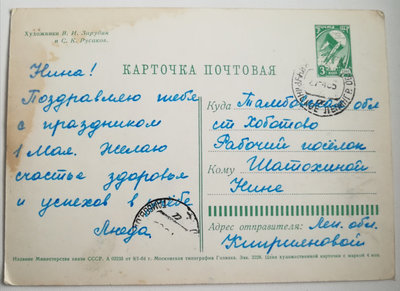 Художники В. И. Зарубин
и С. К. Русаков.
КАРТОЧКА ПОЧТОВАЯ
Нина!
Поздравляю тебя
с праздником
1 Мая. Желаю
счастье здоровья
и успехов в учебе
Куда Тамбовская обл
ст Хоботово
Рабочий посёлок
Кому Шатохиной
Нине
Адрес отправителя: Лен. обл.
Издание Министерства связи СССР. А 03233 от 9/I-64 г. Московская типография Гознака. Зак. 2228. Цена художественной карточки с маркой 4 коп.